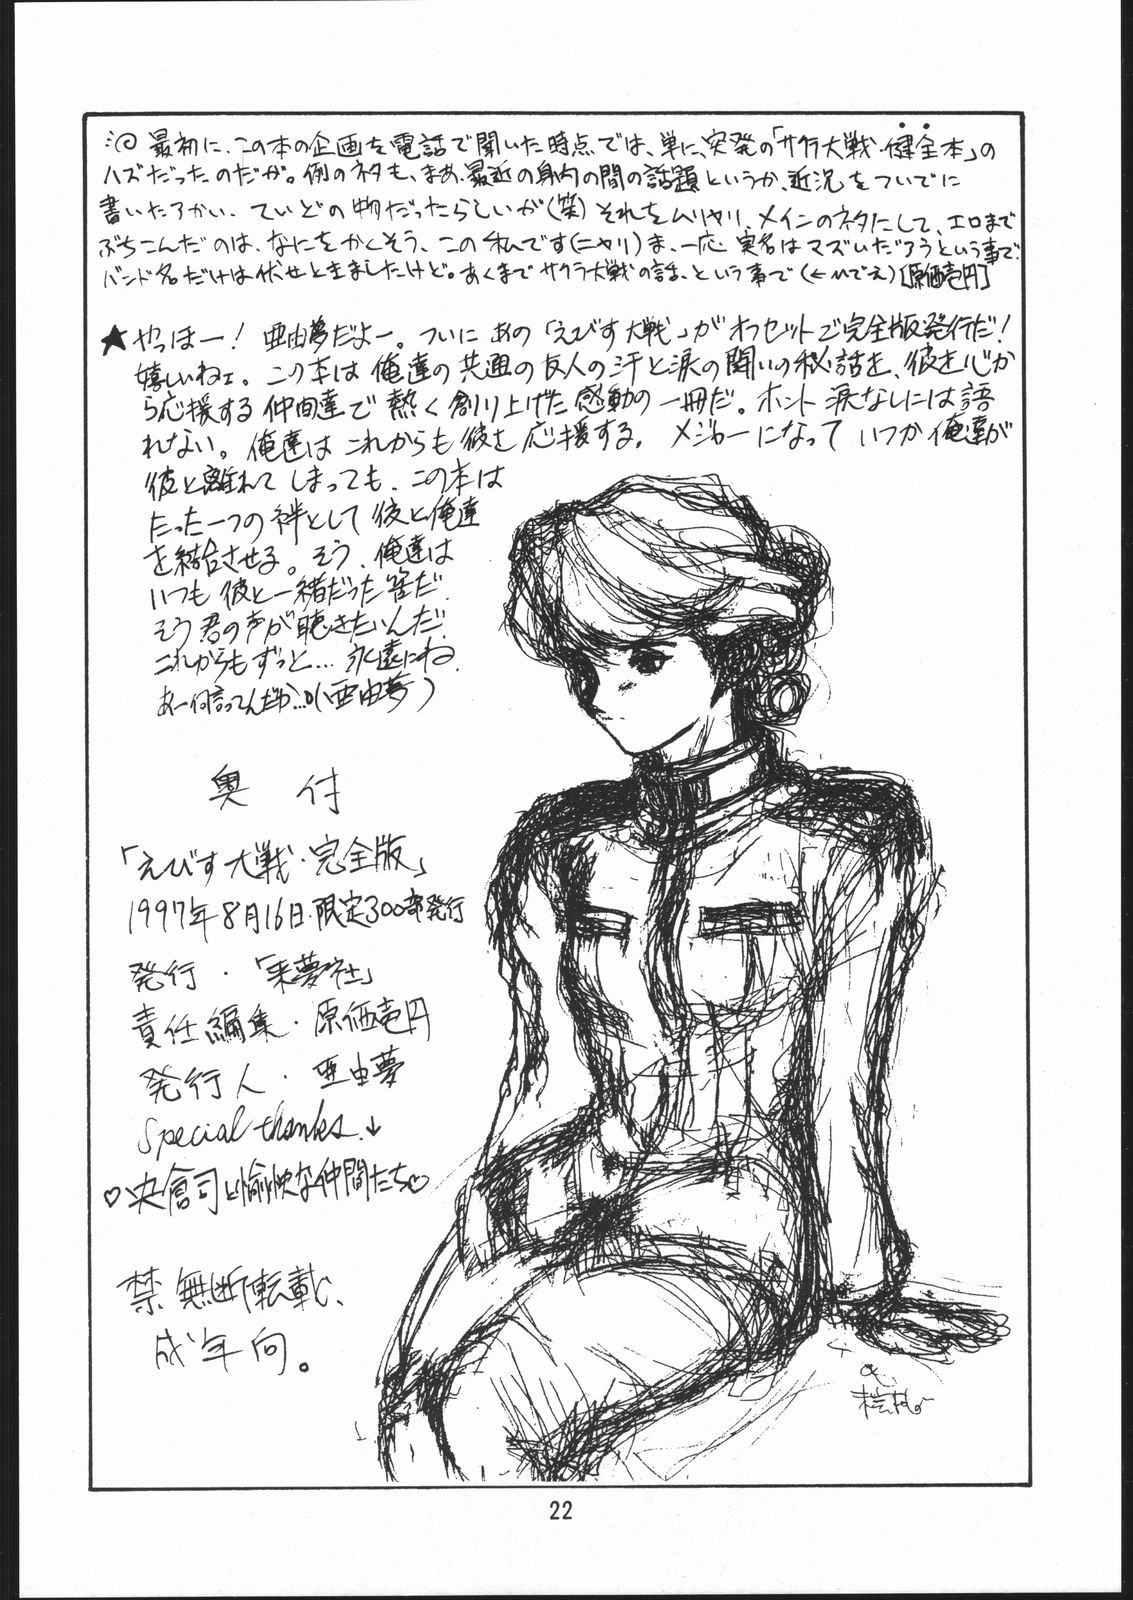 最初に、この本の企画を電話で聞いた時点では、単に、突発の「サクラ大戦・健全本」の
ハズだったのだが。例のネタも、まあ、最近の身内の間の話題というか、近況をついでに
書いたろかい、ていどの物だったらしいが(笑)それをムリヤリ、メインのネタにして、エロまで
ぶちこんだのは、なにをかくそう、この私です(ニヤリ)ま、一応、実名はマズいだろうという事で、
バンド名だけは伏せときましたけど。あくまでサクラ大戦の話、という事で(←ひでえ)[原価壱円]
★やっほー!亜由夢だよー。ついにあの「えびす大戦」がオフセットで完全版発行だ!
嬉しいねェ。この本は俺達の共通の友人の汗と涙の闘いの秘話を、彼を心か
ら応援する仲間達で熱く創り上げた感動の一冊だ。ホント涙なしには語
れない。俺達はこれからも彼を応援する。メジャーになっていつか俺達が
彼と離れてしまっても、この本は
たった一つの絆として彼と俺達
を結合させる。そう、俺達は
いつも彼と一緒だった筈だ。
そう君の声が聴きたいんだ。
これからもずっと…永遠にね。
あー何言ってんだか…。(亜由夢)
奥付
「えびす大戦・完全版」
1997年8月16日・限定300部発行
発行・「来夢社」
責任編集・原価壱円
発行人・亜由夢
Special thanks.↓
♡央倉司と愉快な仲間たち♡
禁無断転載、
成年向。
22